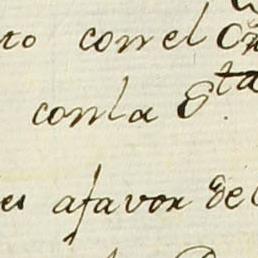 to con el
con la S.ta
es afavor de